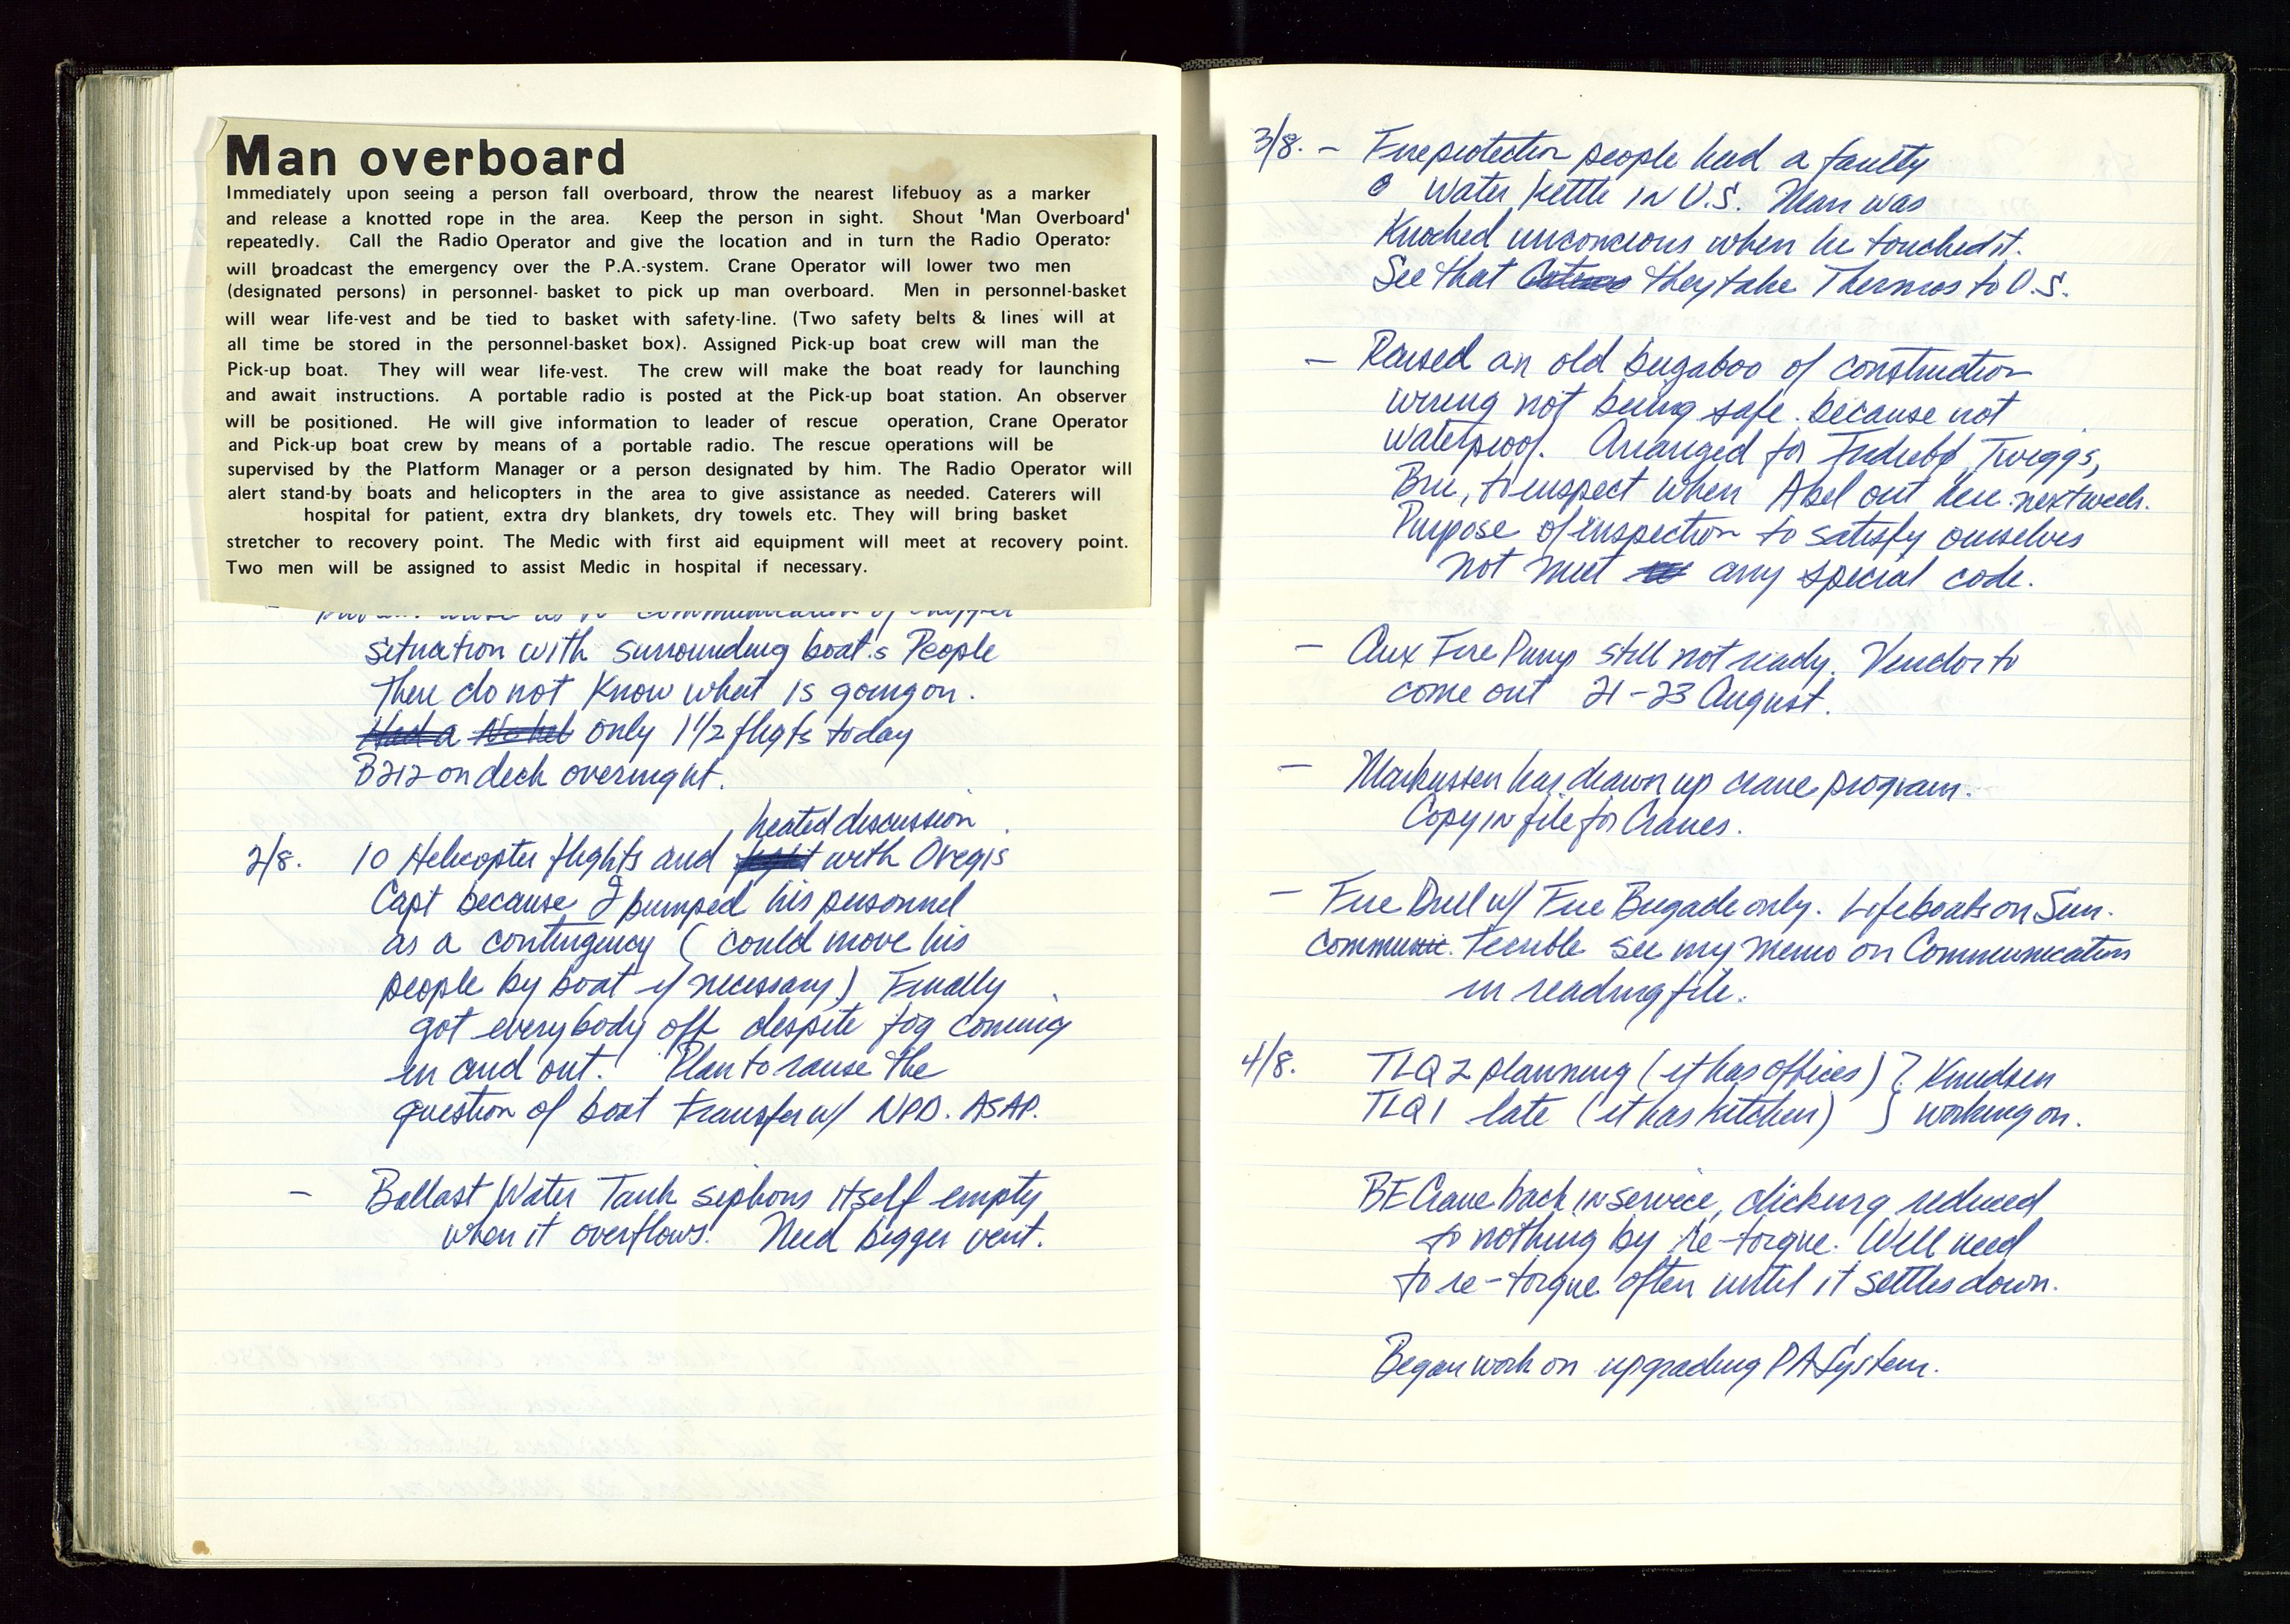 Man overboard
Immediately upon seeing a person fall overboard, throw the nearest lifebuoy as a marker
and release a knotted rope in the area. Keep the person in sight. Shout 'Man Overboard'
repeatedly. Call the Radio Operator and give the location and in turn the Radio Operator
will broadcast the emergency over the P.A.-system. Crane Operator will lower two men
(designated persons) in personnel- basket to pick up man overboard. Men in personnel-basket
will wear life-vest and be tied to basket with safety-line. (Two safety belts & lines will at
all time be stored in the personnel-basket box). Assigned Pick-up boat crew will man the
Pick-up boat. They will wear life-vest. The crew will make the boat ready for launching
and await instructions. A portable radio is posted at the Pick-up boat station. An observer
will be positioned. He will give information to leader of rescue operation, Crane Operator
and Pick-up boat crew by means of a portable radio. The rescue operations will be
supervised by the Platform Manager or a person designated by him. The Radio Operator will
alert stand-by boats and helicopters in the area to give assistance as needed. Caterers will
hospital for patient, extra dry blankets, dry towels etc. They will bring basket
stretcher to recovery point. The Medic with first aid equipment will meet at recovery point.
Two men will be assigned to assist Medic in hospital if necessary.
communication of chopper
situation with surrounding boat.s People
there do not know what is going on.
Had a No hel only 1 1/2 fligts today
B212 on deck overnight.
heated discussion
2/8. 10 Helicopter flights and with Dregis
Capt because I bumped his personnel
as a contingency (could move his
people by boat if necessary) Finally
got everybody off despite fog coming
in and out. Plan to raise the
question of boat transfer w/ NPD. ASAP.
- Ballast Water Tank siphons itself empty
when it overflows. Need bigger vent.
3/8. - Fireprotection people had a faulty
Water Kettle in U.S. Man was
Knocked unconcious when he touched it.
See that they take Thermos to U.S.
- Raised an old bugaboo of construction
wiring not being safe. because not
waterproof. Arranged for Indrebø, Twiggs,
Bru, to inspect when Abel out here next week.
Purpose of inspection to satisfy ourselves
not meet any special code.
- Aux Fire Pump still not ready. Vendor to
come out 21-23 August.
- Markussen has drawn up crane program.
Copy in file for Cranes.
- Fire Drill w/ Fire Brigade only. Lifeboats on Sun.
Communic. Terrible see my memo on Communication
in reading file.
4/8. TLQ 2 planning (it has offices) } Knudsen
TLQ 1 late (it has kitchen) } working on.
BE Crane back in service, clicking reduced
to nothing by re-torque. Will need
to re-torque often until it settles down.
Began work on upgrading PA System.